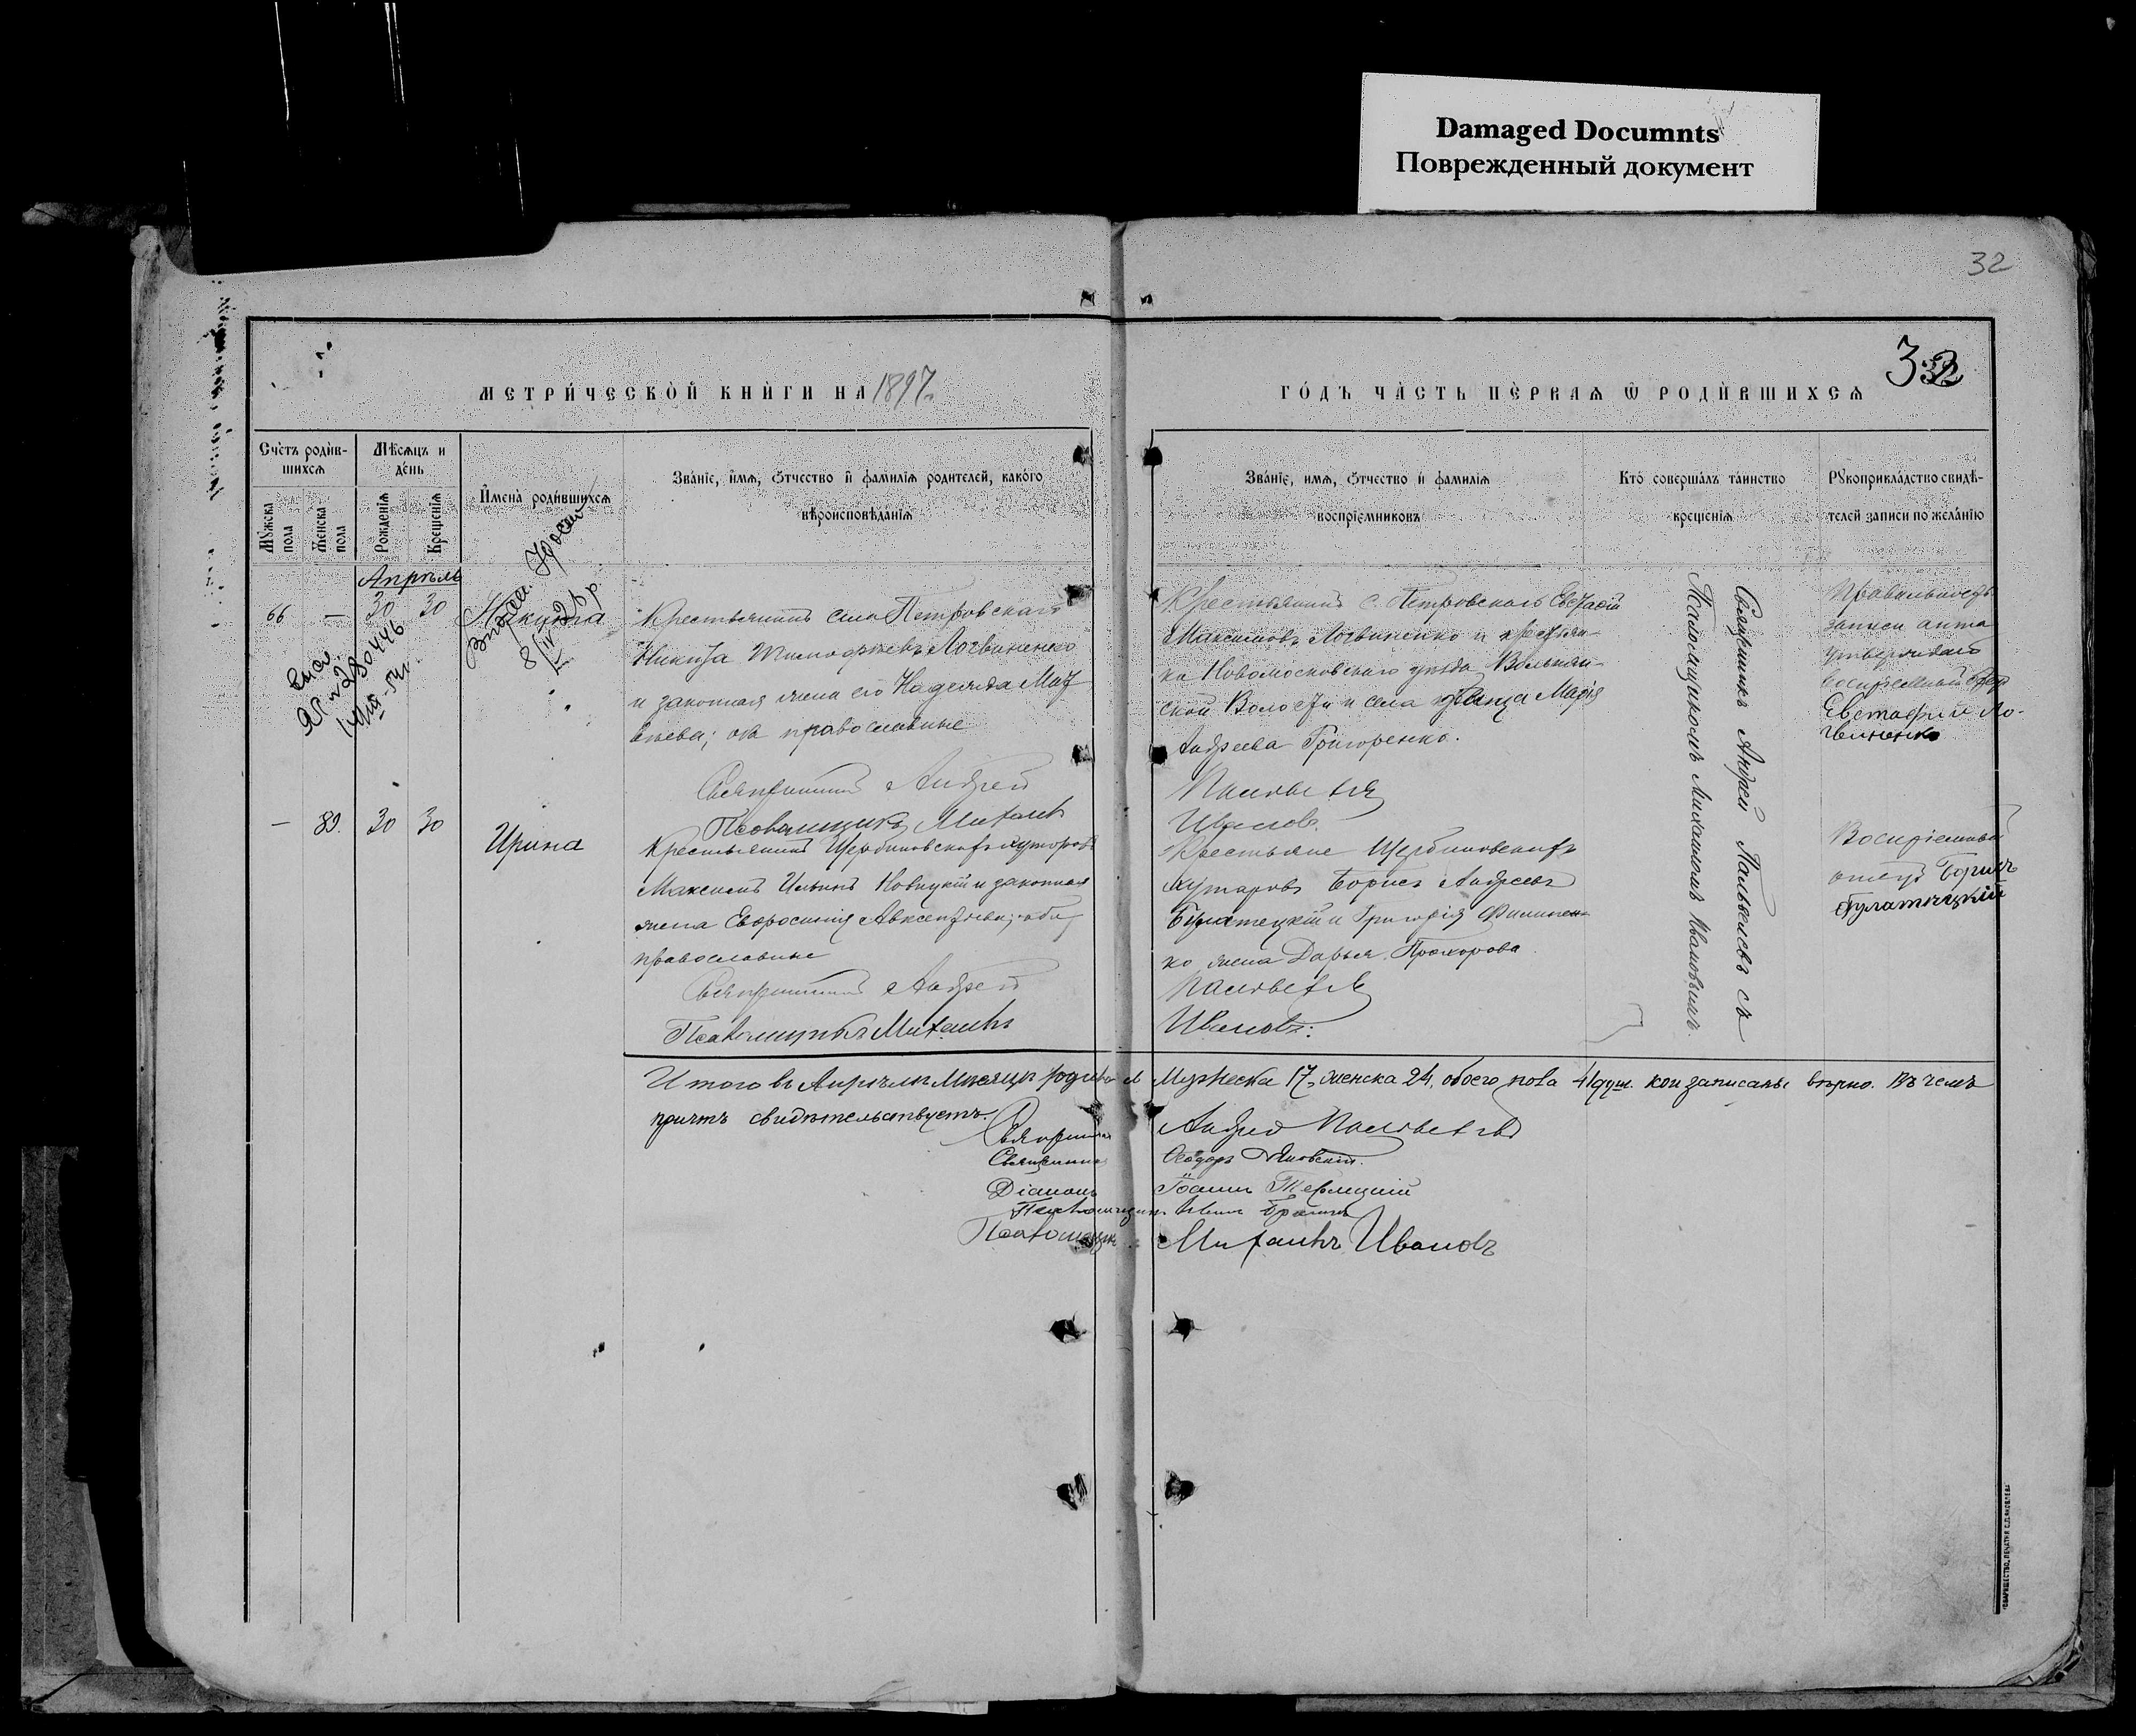 Damaged Documnts
Поврежденный документ
32
32
МЕТРИ́ЧЕСКОЙ КНИ́ГИ НА 1897
ГО́ДЪ ЧА́СТЬ ПЕ́РВАѦ Ѿ РОДИ́ВШИХСѦ
Сче́тъ роди́в-
шихсѧ
Мѣ́сѧцъ и
де́нь
Мꙋ́жска
пола
Же́нска
пола
Рожденїѧ
Крещенїѧ
И҆мена̀ роди́вшихсѧ
Зва́нїе, и҆́мѧ, ѻ҆́тчество и҆ фами́лїѧ роди́телей, како́го
вѣроисповѣ́данїѧ
Зва́нїе, и҆́мѧ, ѻ҆́тчество и҆ фами́лїѧ
воспрїе́мниковъ
Кто̀ соверша́лъ та́инство
креще́нїѧ
Рꙋкоприкла́дство свидѣ́-
телей записи по жела́нїю
Апрѣль
66 — 30 30 Никита
8/IV 26 р.
280446
Крестьянинъ села Петровскаго
Никита Тимофеевъ Логвиненко
и законная жена его Надежда Мат
веева; оба православные
Священникъ Андрей
Псаломщикъ Михаилъ
Крестьянинъ с. Петровскаго Евстафій
Максимовъ Логвиненко и крестьян-
ка Новомосковскаго уѣзда
ской Волости и села Марія
Андреева Григоренко.
Павловскій
Ивановъ.
Священникъ Андрей съ
Псаломщикомъ Михаиломъ Ивановымъ.
Правильность
записи акта
утверждаю
Евстафий Ло-
гвиненко
— 89. 30 30 Ирина
Крестьянинъ Щербиновскихъ хуторовъ
Максимъ Ильинъ Новицкій и законная
жена Евфросинія Авксентьева; оба
православные
Священникъ Андрей
Псаломщикъ Михаилъ
Крестьяне Щербиновскихъ
хуторовъ Борисъ Андреевъ
и Григорія Филипен-
ко жена Дарья Прохорова.
Павловскій
Ивановъ:
Воспріемный
отецъ Борисъ
Итого въ Апрѣлѣ Мѣсяцѣ родилось Мужеска 17, женска 24, обоего пола 41 душ. кои записаны вѣрно. Въ чемъ
причтъ свидѣтельствуетъ.
Священникъ Андрей Павловскій
Священникъ Ѳеодоръ
Діаконъ Іоаннъ
Псаломщикъ
Псаломщикъ Михаилъ Ивановъ